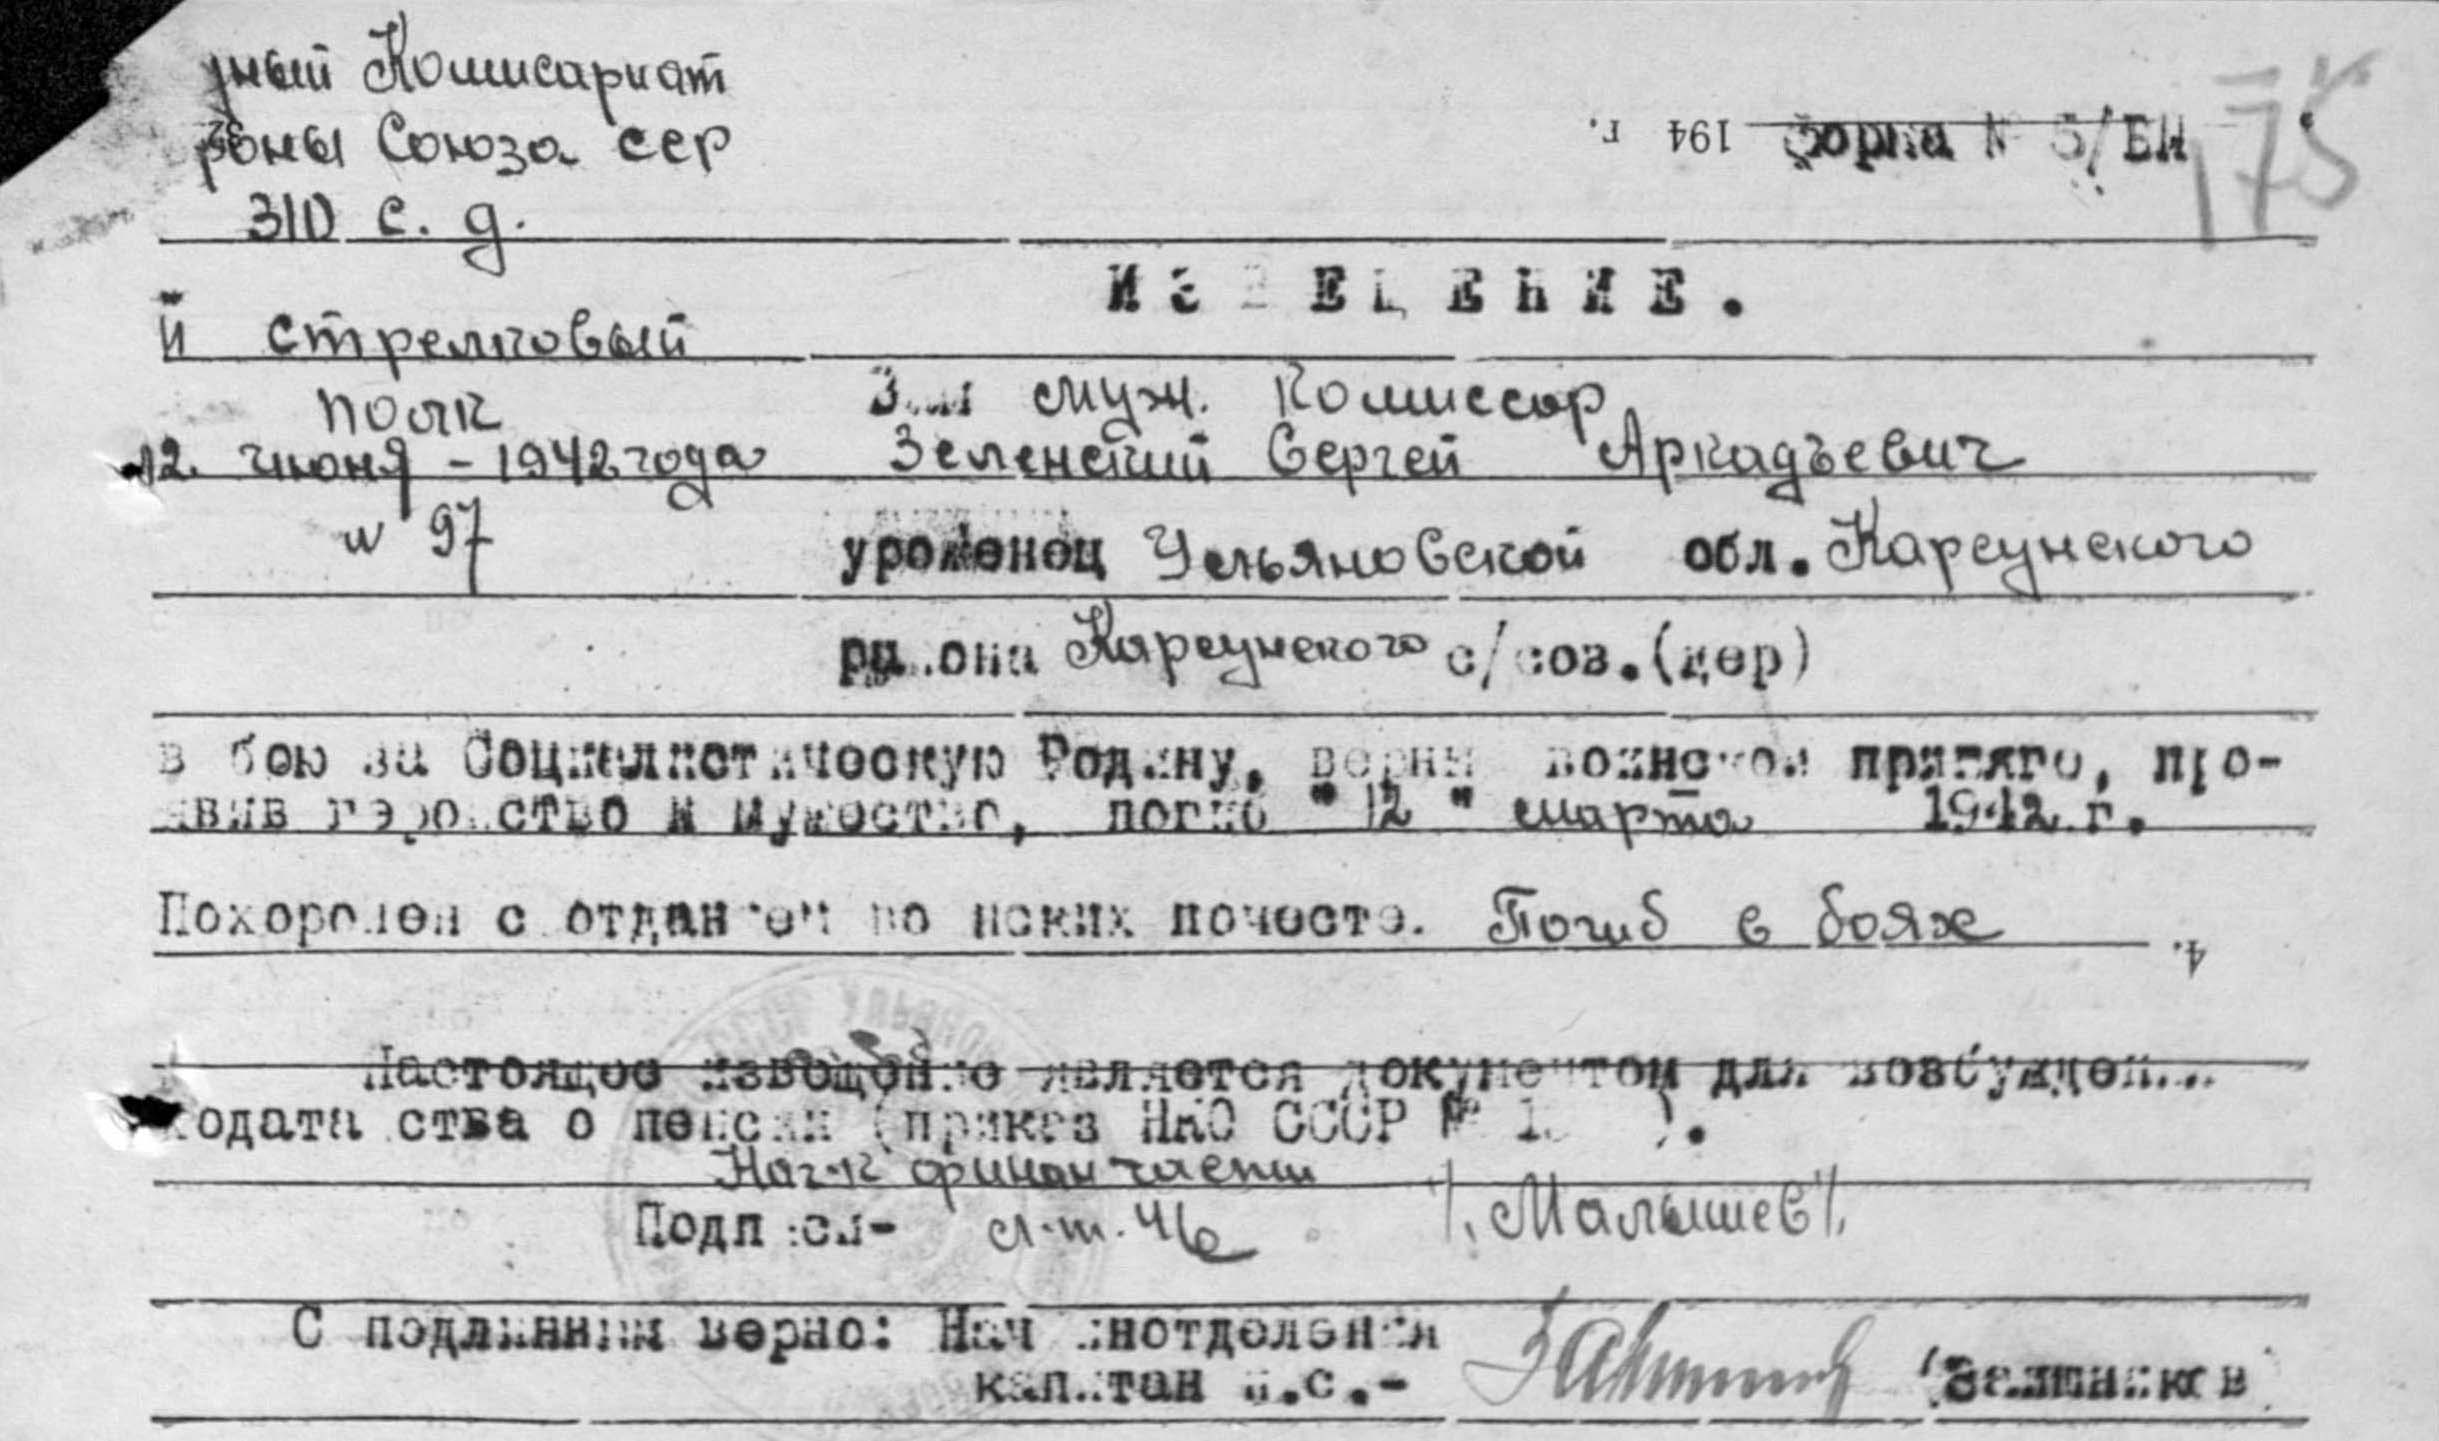 ный Комисариат
роны Союза ССР
194 г. Форма № 5/БН
175
310 с. д.
ИЗВЕЩЕНИЕ.
й стрелковый
полк
Ваш муж. Комиссар
12. июня - 1942 года
Зеленский Сергей Аркадъевич
№ 97
уроженец Ульяновской обл. Карсунского
района Карсунского с/сов. (дер)
в бою за Социалистическую Родину, верный воинской присяге, про-
явив геройство и мужество, погиб "12" марта 1942 г.
Похоронен с отданием воинских почесте. Погиб в боях
Настоящее извещение является документом для возбуждения
ходатайства о пенсии (приказ НКО СССР № ).
Нач-к финан части
Подписи- /. Малышев /.
С подлинным верно: Нач инотделения
капитан и.с.-